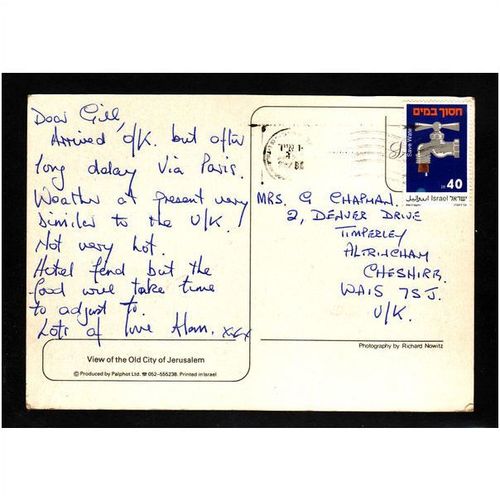 Dear Gill,
Arrived O/K. but after
long delay via Paris.
Weather at present very
similar to the U/K!
Not very hot.
Hotel fend but the
food will take time
to adjust to.
Lots of love Alan. xxx
View of the Old City of Jerusalem
© Produced by Palphot Ltd. ☎ 052-555238. Printed in Israel
חסוך במים
Save Water
40
ישראל Israel اسرائيل
MRS. G CHAPMAN.
2, DENVER DRIVE
TIMPERLEY
ALTRINCHAM
CHESHIRE.
WA15 7SJ.
U/K.
Photography by Richard Nowitz